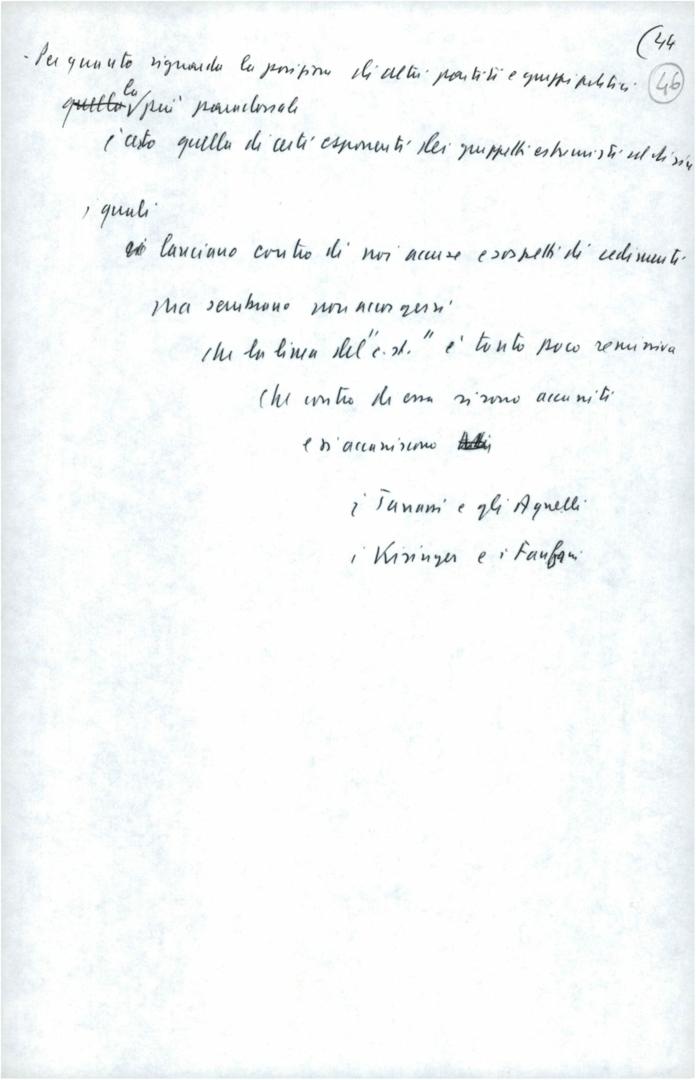 (44
46
- Per quanto riguarda la posizione di altri partiti e gruppi politici
quella la più paradossale
è certo quella di certi esponenti dei gruppetti estremisti ed di sin
i quali
lanciano contro di noi accuse e sospetti di cedimenti
ma sembrano non accorgersi
che la linea del "c.st." è tanto poco remissiva
che contro di essa si sono accaniti
e si accaniscono
i Tanassi e gli Agnelli
i Kisinger e i Fanfani